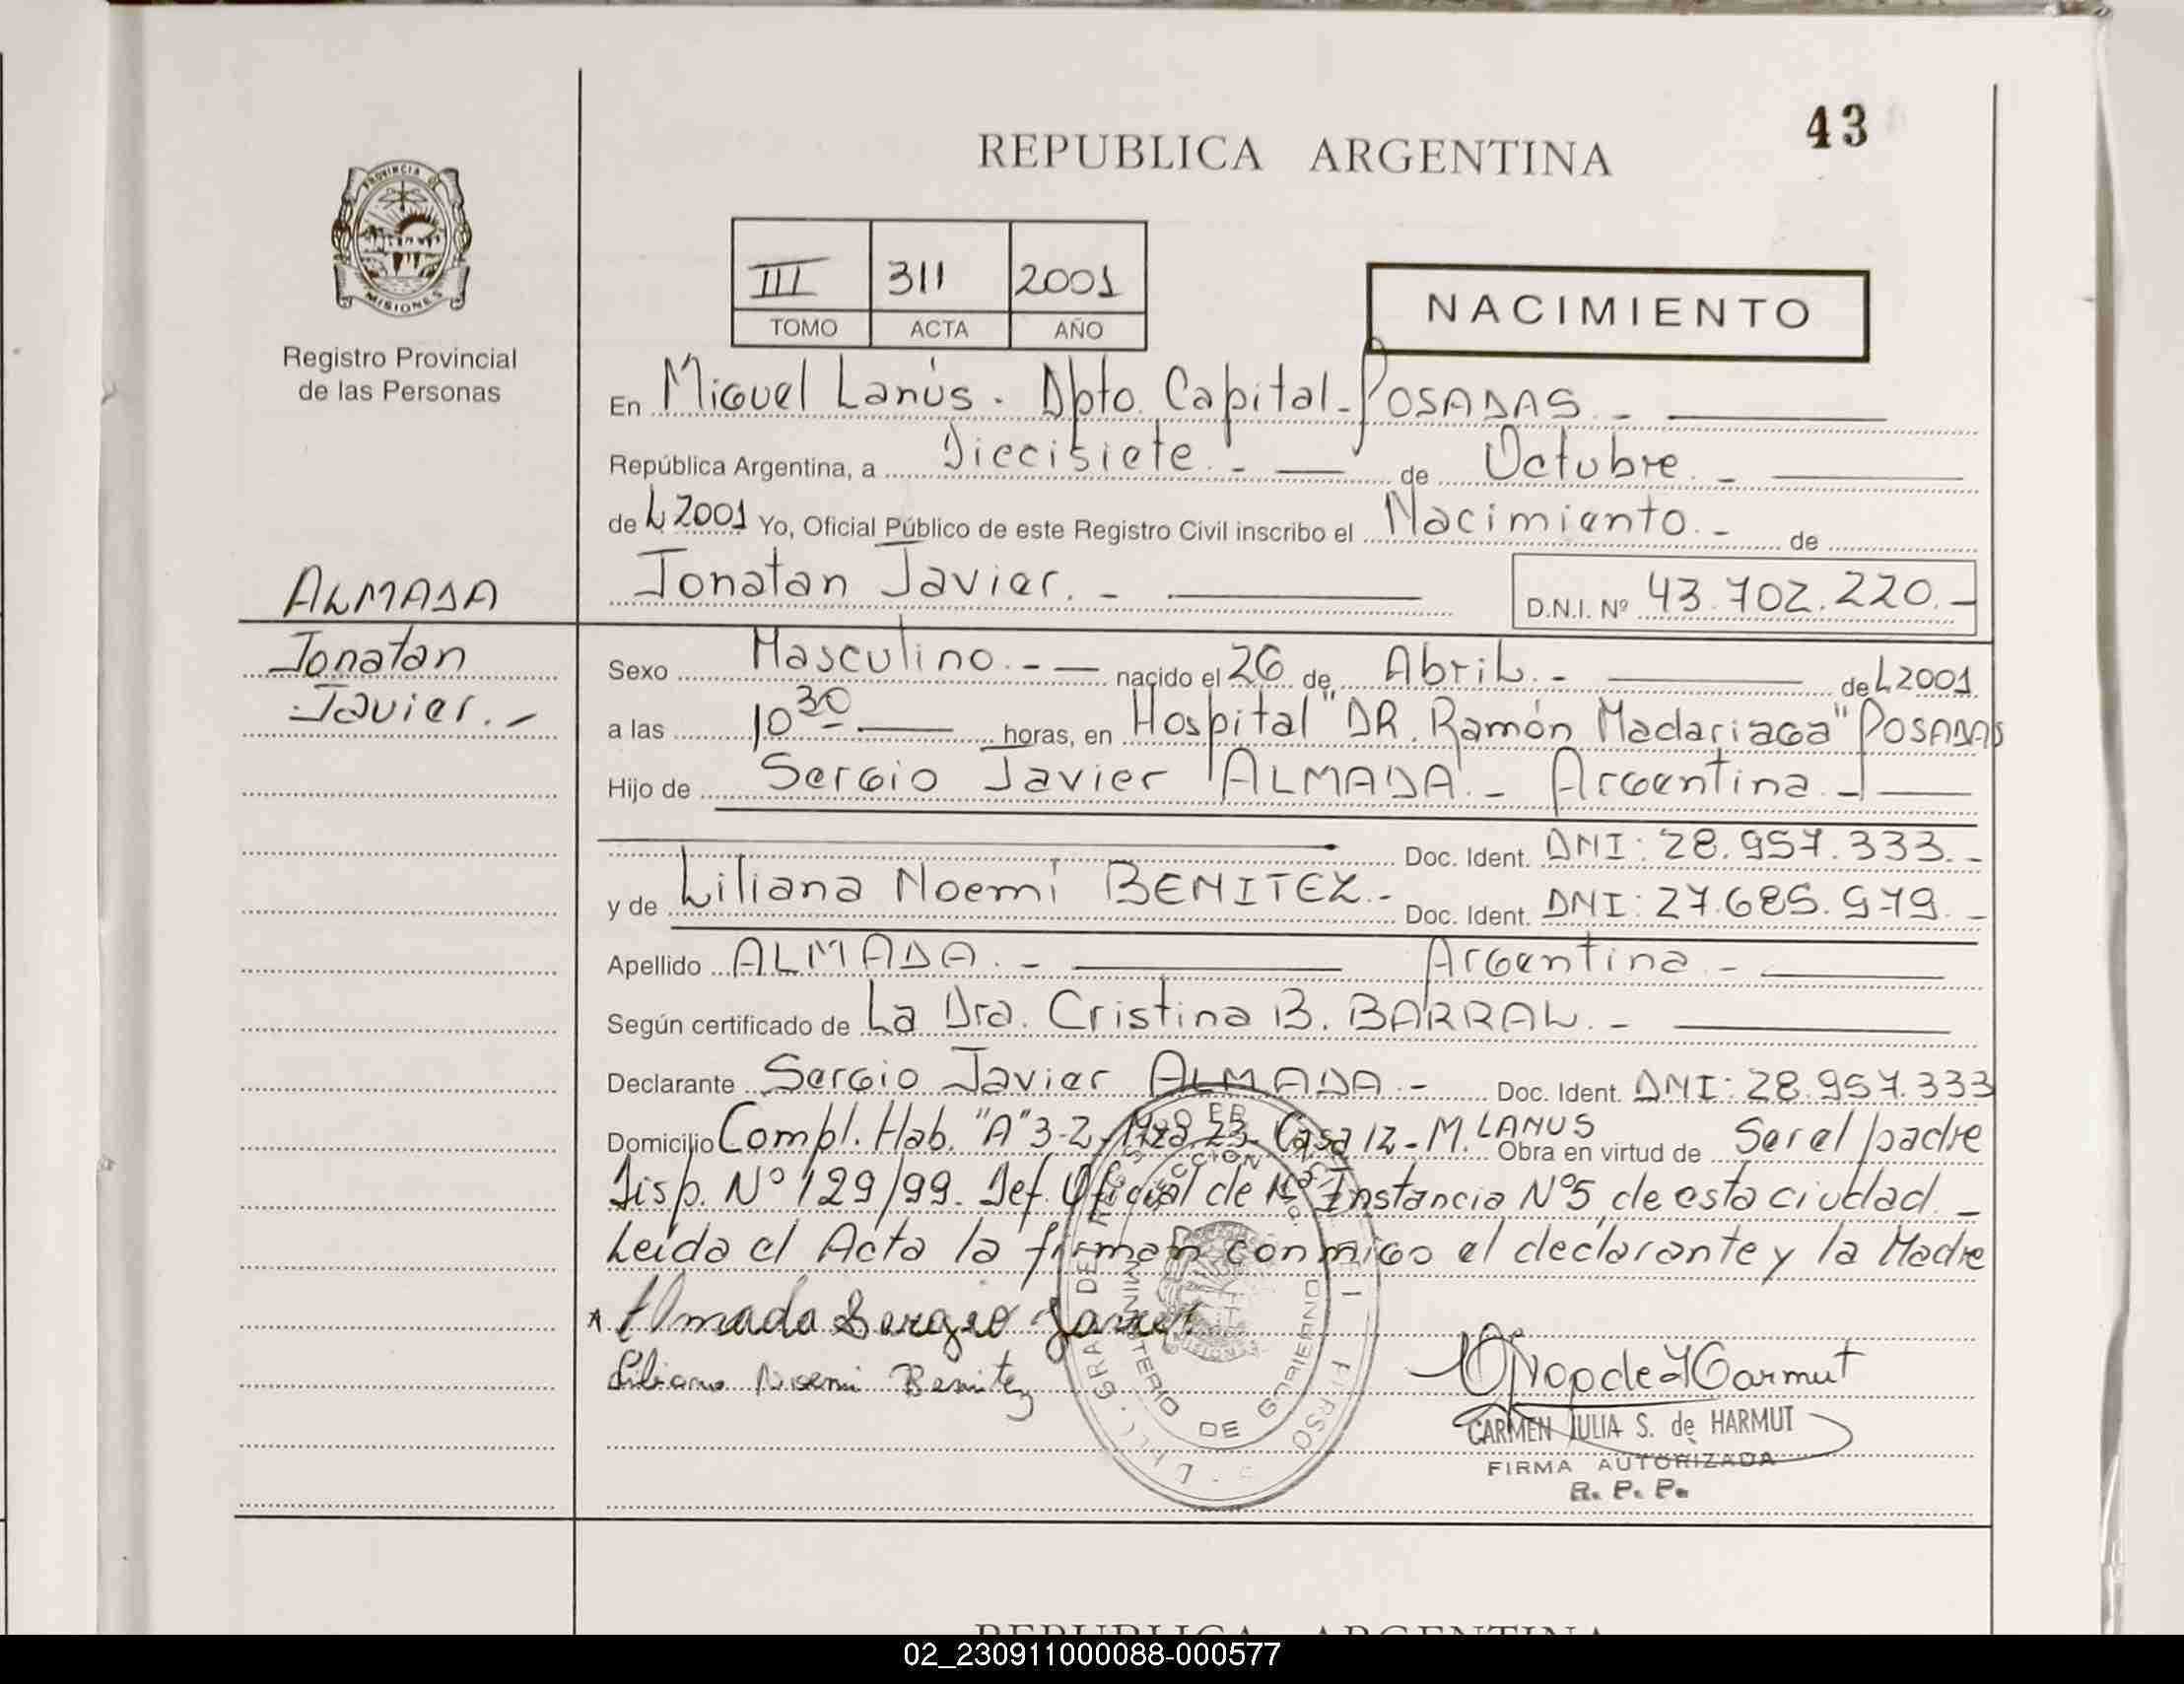 43
REPUBLICA ARGENTINA
PROVINCIA DE
MISIONES
Registro Provincial
de las Personas
III 311 2001
TOMO ACTA AÑO
NACIMIENTO
En Miguel Lanús. Dpto. Capital-POSADAS.-
República Argentina, a Diecisiete.- de Octubre.-
de L 2001 Yo, Oficial Público de este Registro Civil inscribo el Nacimiento.- de
Jonatan Javier.- D.N.I. Nº 43.702.220.-
ALMADA
Jonatan
Javier.-
Sexo Masculino.- nacido el 26 de Abril.- de L2001
a las 10 30 horas, en Hospital "DR. Ramón Madariaga" POSADAS
Hijo de Sergio Javier ALMADA.- Argentina.-
Doc. Ident. DNI: 28.957.333.-
y de Liliana Noemí BENITEZ.- Doc. Ident. DNI: 27.685.979.-
Apellido ALMADA.- Argentina.-
Según certificado de La Dra. Cristina B. BARRAL.-
Declarante Sergio Javier ALMADA.- Doc. Ident. DNI: 28.957.333
Domicilio Compl. Hab. "A" 3-2- Mza 23- Casa 12-M. LANUS Obra en virtud de Ser el padre
Disp. Nº 129/99. Def. Oficial de Instancia Nº5 de esta ciudad.-
Leída el Acta la firman conmigo el declarante y la Madre
Almada Sergio Javier
Liliana Noemi Benitez
MINISTERIO DE GOBIERNO
CARMEN JULIA S. de HARMUT
FIRMA AUTORIZADA
R. P. P.
REPUBLICA ARGENTINA
02_230911000088-000577